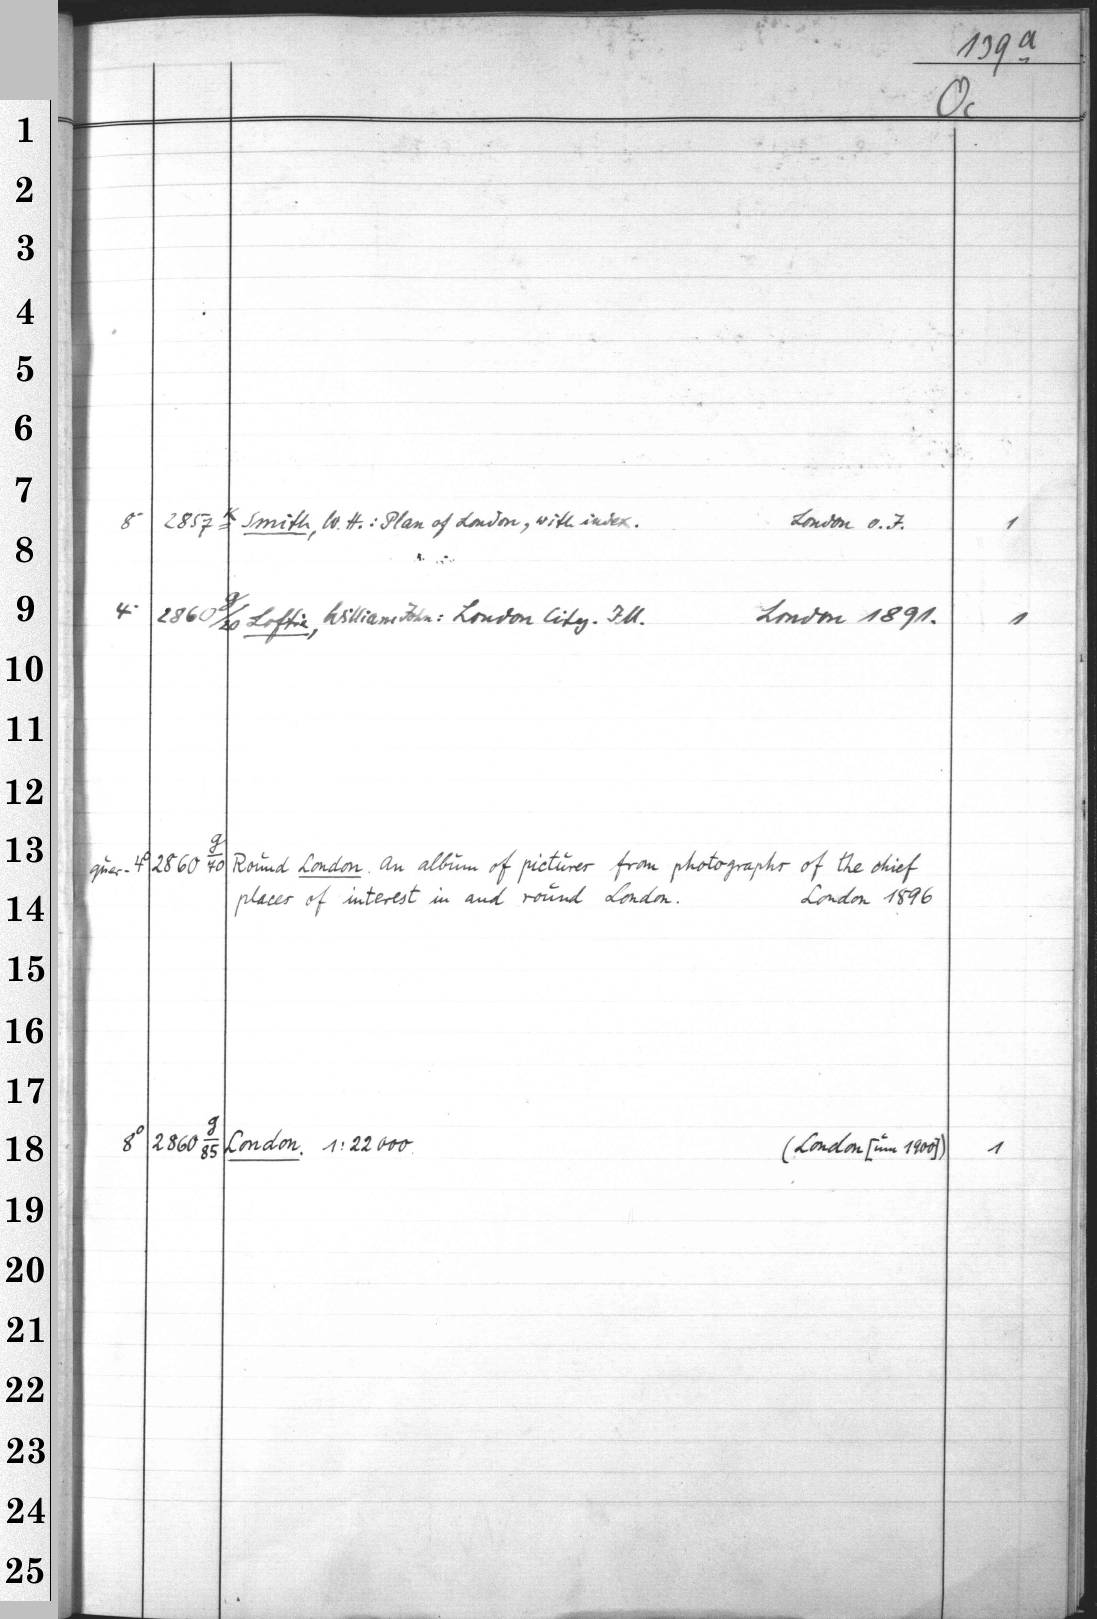 139 a
Oc
1
2
3
4
5
6
7
8- 2857 k Smith, W. H.: Plan of London, with index. London o. J. 1
8
9
4- 2860 g/20 Loftie, William John: London City. Ill. London 1891. 1
10
11
12
13
quer-4° 2860 g/40 Round London. An album of pictures from photographs of the chief
14
places of interest in and round London. London 1896
15
16
17
18
8° 2860 g/85 London. 1:22000. (London [um 1900]) 1
19
20
21
22
23
24
25